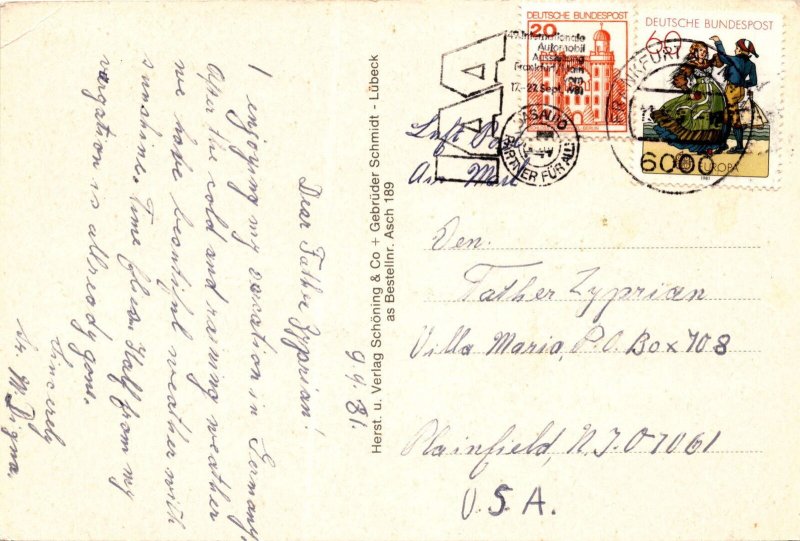 9.9.81.
Dear Father Zyprian!
I enjoying my vacation in Germany.
After the cold and raining weather
we have beautiful weather with
sunshine. Time flies. Half from my
vargation is allready gone.
Sincerely
Sr. M. Digna.
Herst. u. Verlag Schöning & Co + Gebrüder Schmidt - Lübeck
as Bestellnr. Asch 189
DEUTSCHE BUNDESPOST
20
DEUTSCHE BUNDESPOST
60
EUROPA
1981
IAA
49. Internationale
Automobil
Ausstellung
Frankfurt
17.-27. Sept.
PARTNER FÜR ALLE
FRANKFURT AM MAIN
6000
Luft Post
Air Mail
Den.
Father Zyprian
Villa Maria, P.O. Box 708
Plainfield, N.J. 07061
U.S.A.